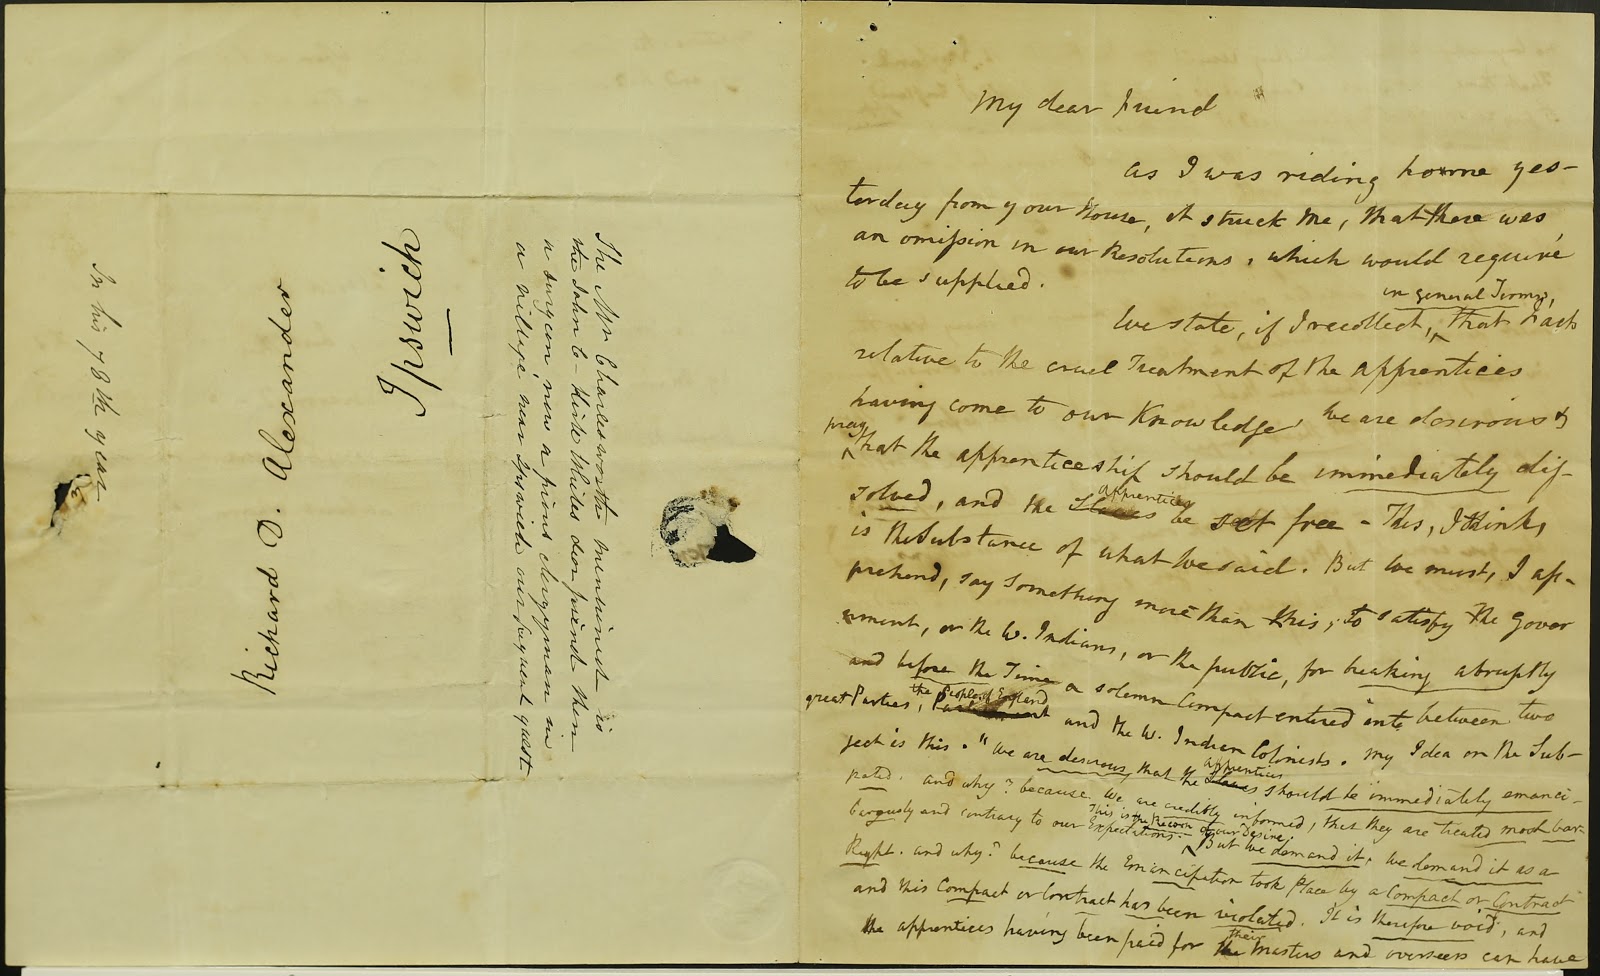 In his 78th year
Richard D. Alexander
Ipswich
The Mr Charlesworth mentioned is
the John C- Kirk Whites dear friend then
a surgeon, now a pious clergyman in
a village near Ipswich our frequent guest
My dear Friend
as I was riding home yes-
terday from your House, it struck me, that there was
an omission in our Resolutions, which would require
to be supplied.
in general Terms,
We state, if I recollect, that Facts
relative to the cruel Treatment of the apprentices
having come to our Knowledge, we are desirous &
pray
that the apprenticeship should be immediately dis-
solved, and the Slaves apprentices be set free - This, I think,
is the substance of what we said. But we must, I ap-
prehend, say something more than this, to satisfy the Gover
nment, or the W. Indians, or the public, for breaking abruptly
and before the Time a solemn Compact entered into between two
great Parties, Parliament the People of England and the W. Indian Colonists. My Idea on the Sub-
ject is this. "We are desirous, that the Slaves apprentices should be immediately emanci-
pated. and why? because we are credibly informed, that they are treated most bar-
barously and contrary to our Expectations. This is the reason of our Desire. But we demand it, we demand it as a
Right. and why? because the Emancipation took Place by a Compact or Contract
and this Compact or Contract has been violated. It is therefore void, and
the apprentices having been paid for the their Masters and overseers can have